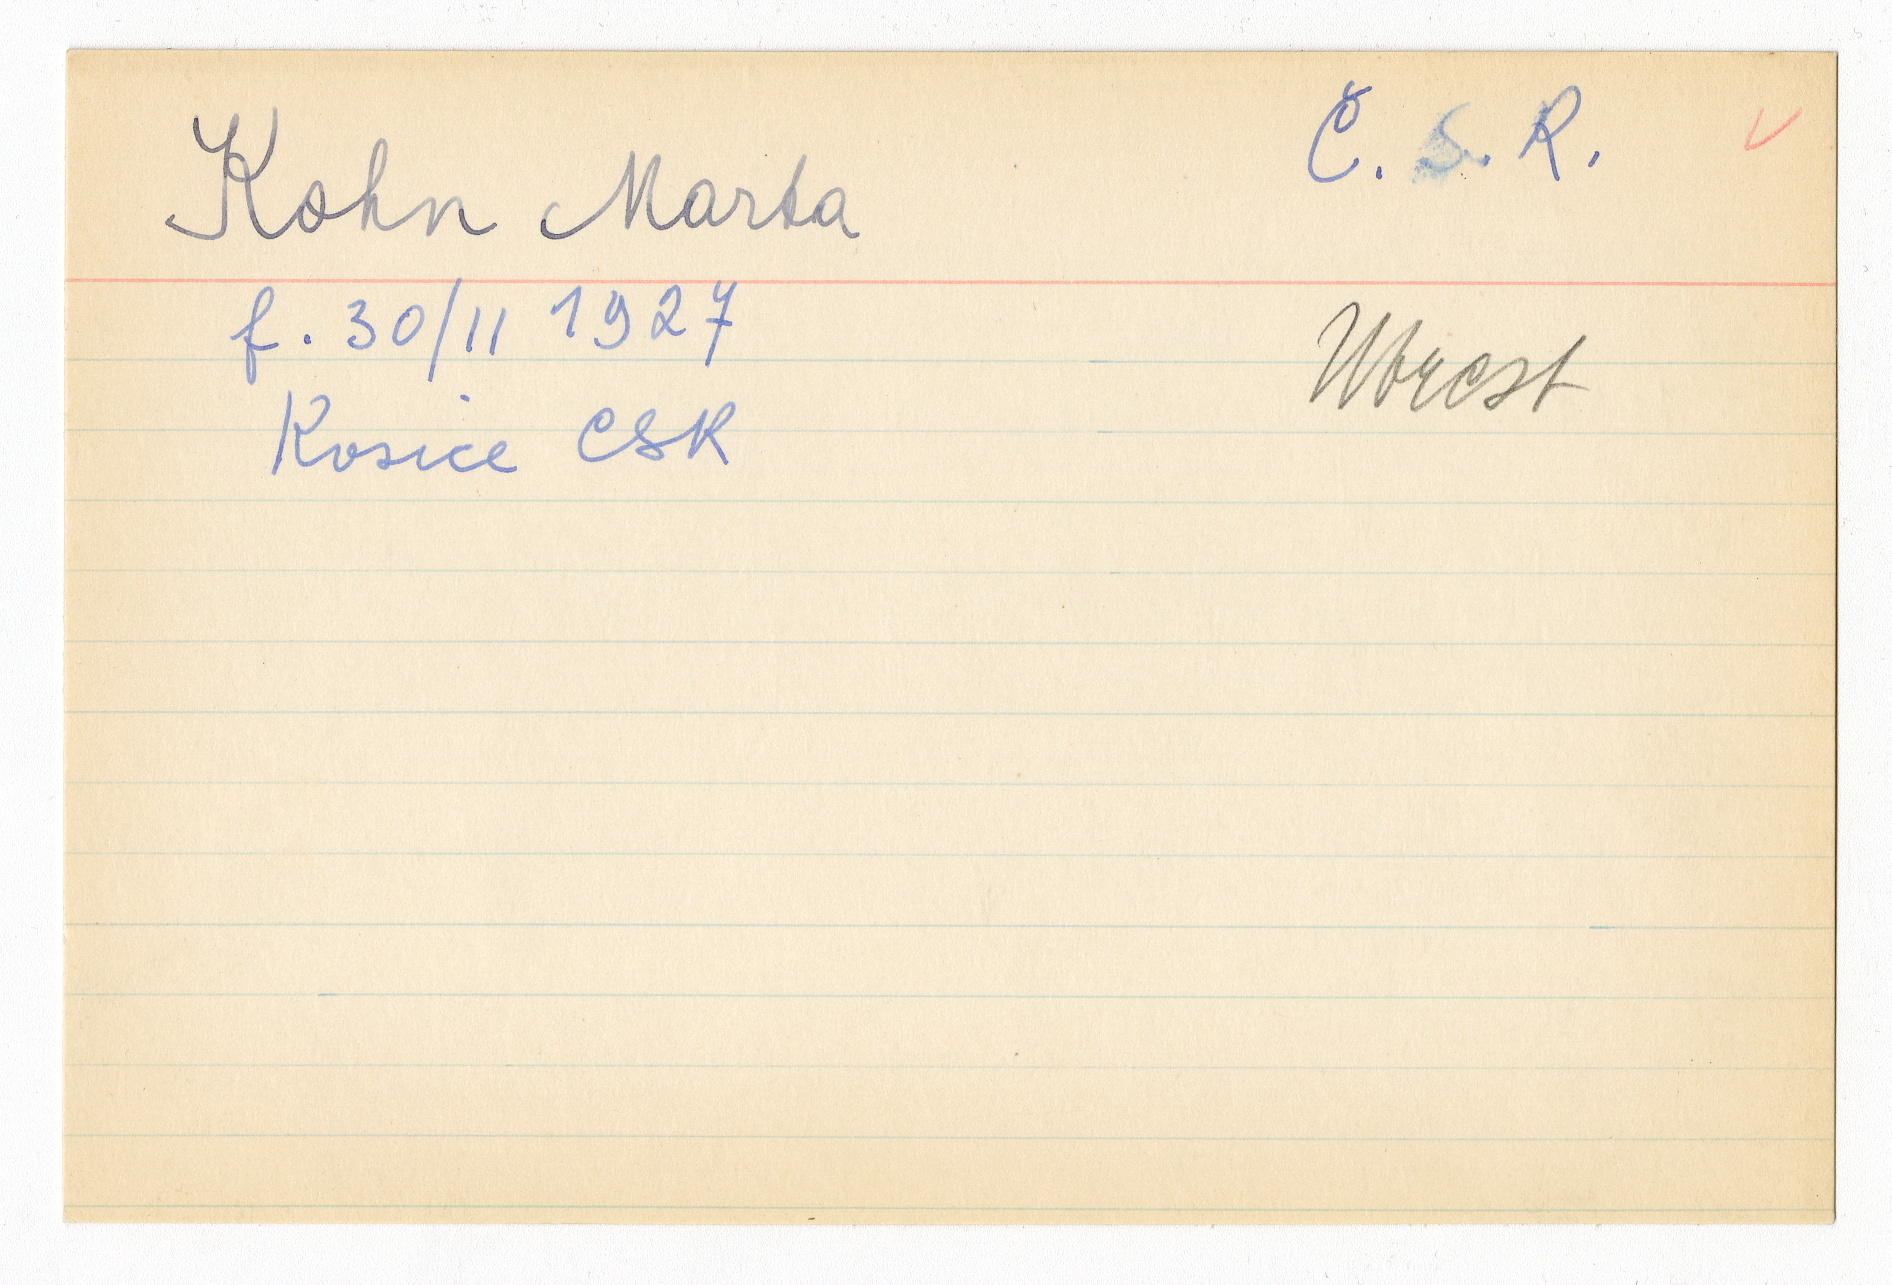 Kohn Marta
Č. S. R.
f. 30/11 1927
Kosice CSR